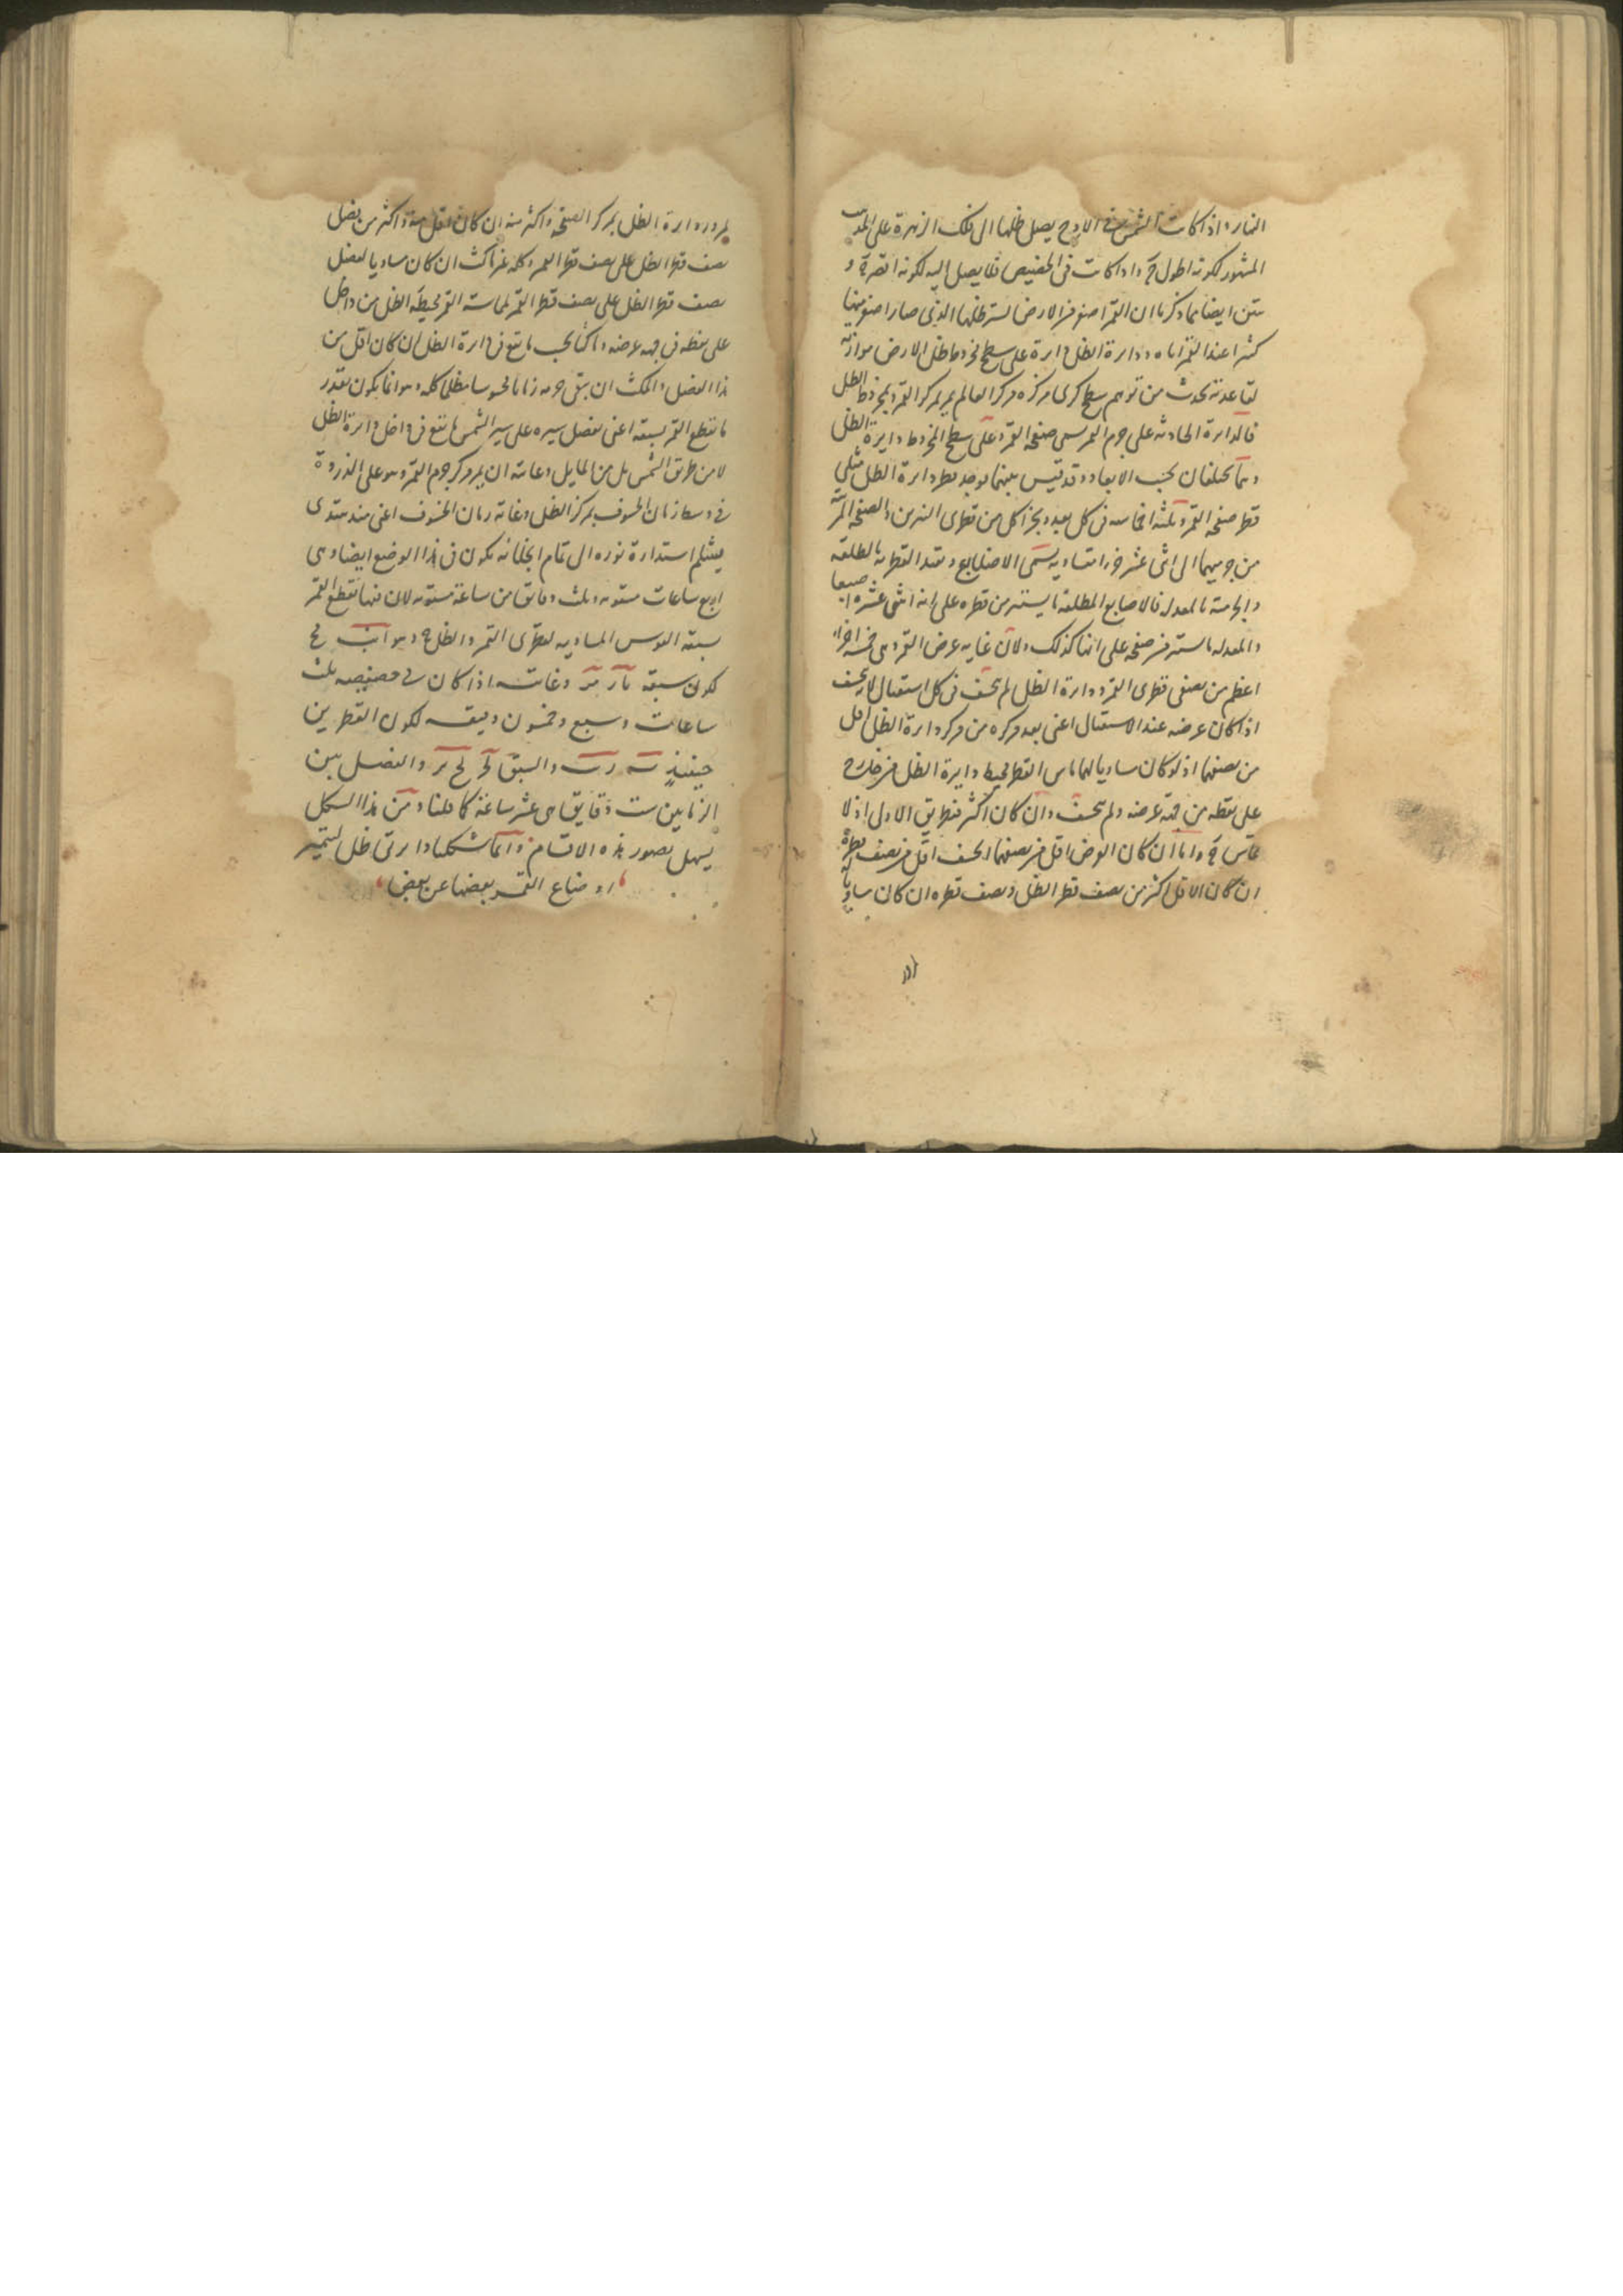 النهار واذا كانت الشمس فى الاوج يصل ظلها الى فلك الزهرة على المذهب
المشهور لكونه اطول ح واذا كانت فى الحضيض فلا يصل اليه لكونه اقصر ح و
تبين ايضا مما ذكرنا ان القمر اصغر من الارض لستر ظلها الذى صار اصغر منها
كثيرا عند القمر اياه ودايرة الظل دايرة على سطح مخروط ظل الارض موازية
لقاعدته تحدث من توهم سطح كرى مركزه مركز العالم يمر بمركز القمر وبمخروط الظل
فالدايرة الحادثه على جرم القمر تسمى صفحة القمر وعلى سطح المخروط دايرة الظل
وهما تختلفان بحسب الابعاد وقد قيس بينهما فوجد قطر دايرة الظل مثلى
قطر صفحة القمر وثلثة اخماسه فى كل بعد ويجزا كل من قطرى النيرين والصفحة المرئية
من جرميهما الى اثنى عشر جزءا متساوية يسمى الاصابع وتقيد القطرية بالمطلقة
والجرمية بالمعدلة فالاصابع المطلقة ما يستتر من قطره على انه اثنى عشر اصبعا
والمعدلة ما ستر من صفحته على انها كذلك ولان غاية عرض القمر وهى خمسة اجزاء
اعظم من نصفى قطرى القمر ودايرة الظل لم يخسف فى كل استقبال بل يخسف
اذا كان عرضه عند الاستقبال اعنى بعد مركزه من مركز دايرة الظل اقل
من نصفهما اذ لو كان مساويا لهما ماس القمر محيط دايرة الظل من خارج
على نقطة من جهة عرضه ولم يخسف وان كان اكثر فبطريق الاولى اذ لا
تماس ح واما ان كان العرض اقل من نصفهما انخسف اقل من نصف قطره
ان كان الاقل اكثر من نصف قطر الظل ونصف قطره ان كان مساويا
لمرور دايرة الظل بمركز الصفحة واكثر منه ان كان اقل منه واكثر من فضل
نصف قطر الظل على نصف قطر القمر وكله غير ماكث ان كان مساويا لفضل
نصف قطر الظل على نصف قطر القمر لمماسة القمر محيط الظل من داخل
على نقطة فى جهة عرضه وماكثا بحسب ما يقع فى دايرة الظل ان كان اقل من
هذا الفضل والمكث ان يبقى جرمه زمانا محسوسا مظلما كله وهو انما يكون بقدر
ما يقطع القمر بسبقه اعنى بفضل سيره على سير الشمس ما يقع فى داخل دايرة الظل
لا من طريق الشمس بل من المايل وغايته ان يمر مركز جرم القمر وهو على الذروة
فى وسط زمان الخسوف بمركز الظل وغاية زمان الخسوف اعنى منذ يبتدى
ينثلم استدارة نوره الى تمام انجلائه يكون فى هذا الوضع ايضا وهى
اربع ساعات مستوية وثلث دقايق من ساعة مستوية لان فيها يقطع القمر
بسبقه القوس المساوية لقطرى القمر والظل ح وهو
لكون سبقه وغايته اذا كان فى حضيضه ثلث
ساعات وسبع وخمسون دقيقه لكون القطرين
حينئذ والسبق والفضل بين
الزمانين ست دقايق هى عشر ساعة كاملة ومن هذا الشكل
يسهل تصور هذه الاقسام وانما شكلنا دايرتى ظل لتميز
اوضاع القمر بعضها عن بعض